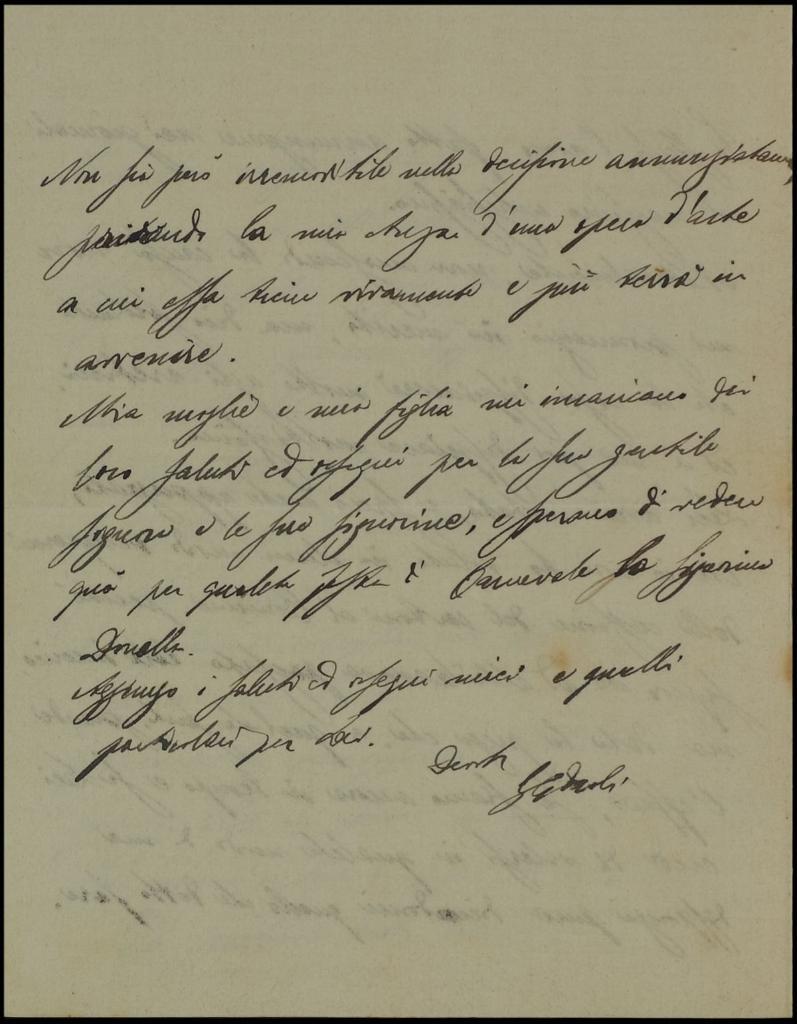 Non sia però irremovibile nella decisione annunziatami,
privando la mia d'una opera d'arte
a cui essa tiene vivamente e più terrà in
avvenire.
Mia moglie e mia figlia mi incaricano dei
loro saluti ed ossequi per la sua gentile
signora e le sue signorine, e sperano di vedere
quà per qualche festa di Carnevale la signorina
Donella.
Aggiungo i saluti ed ossequi miei e quelli
particolari per Lei.
Devoto